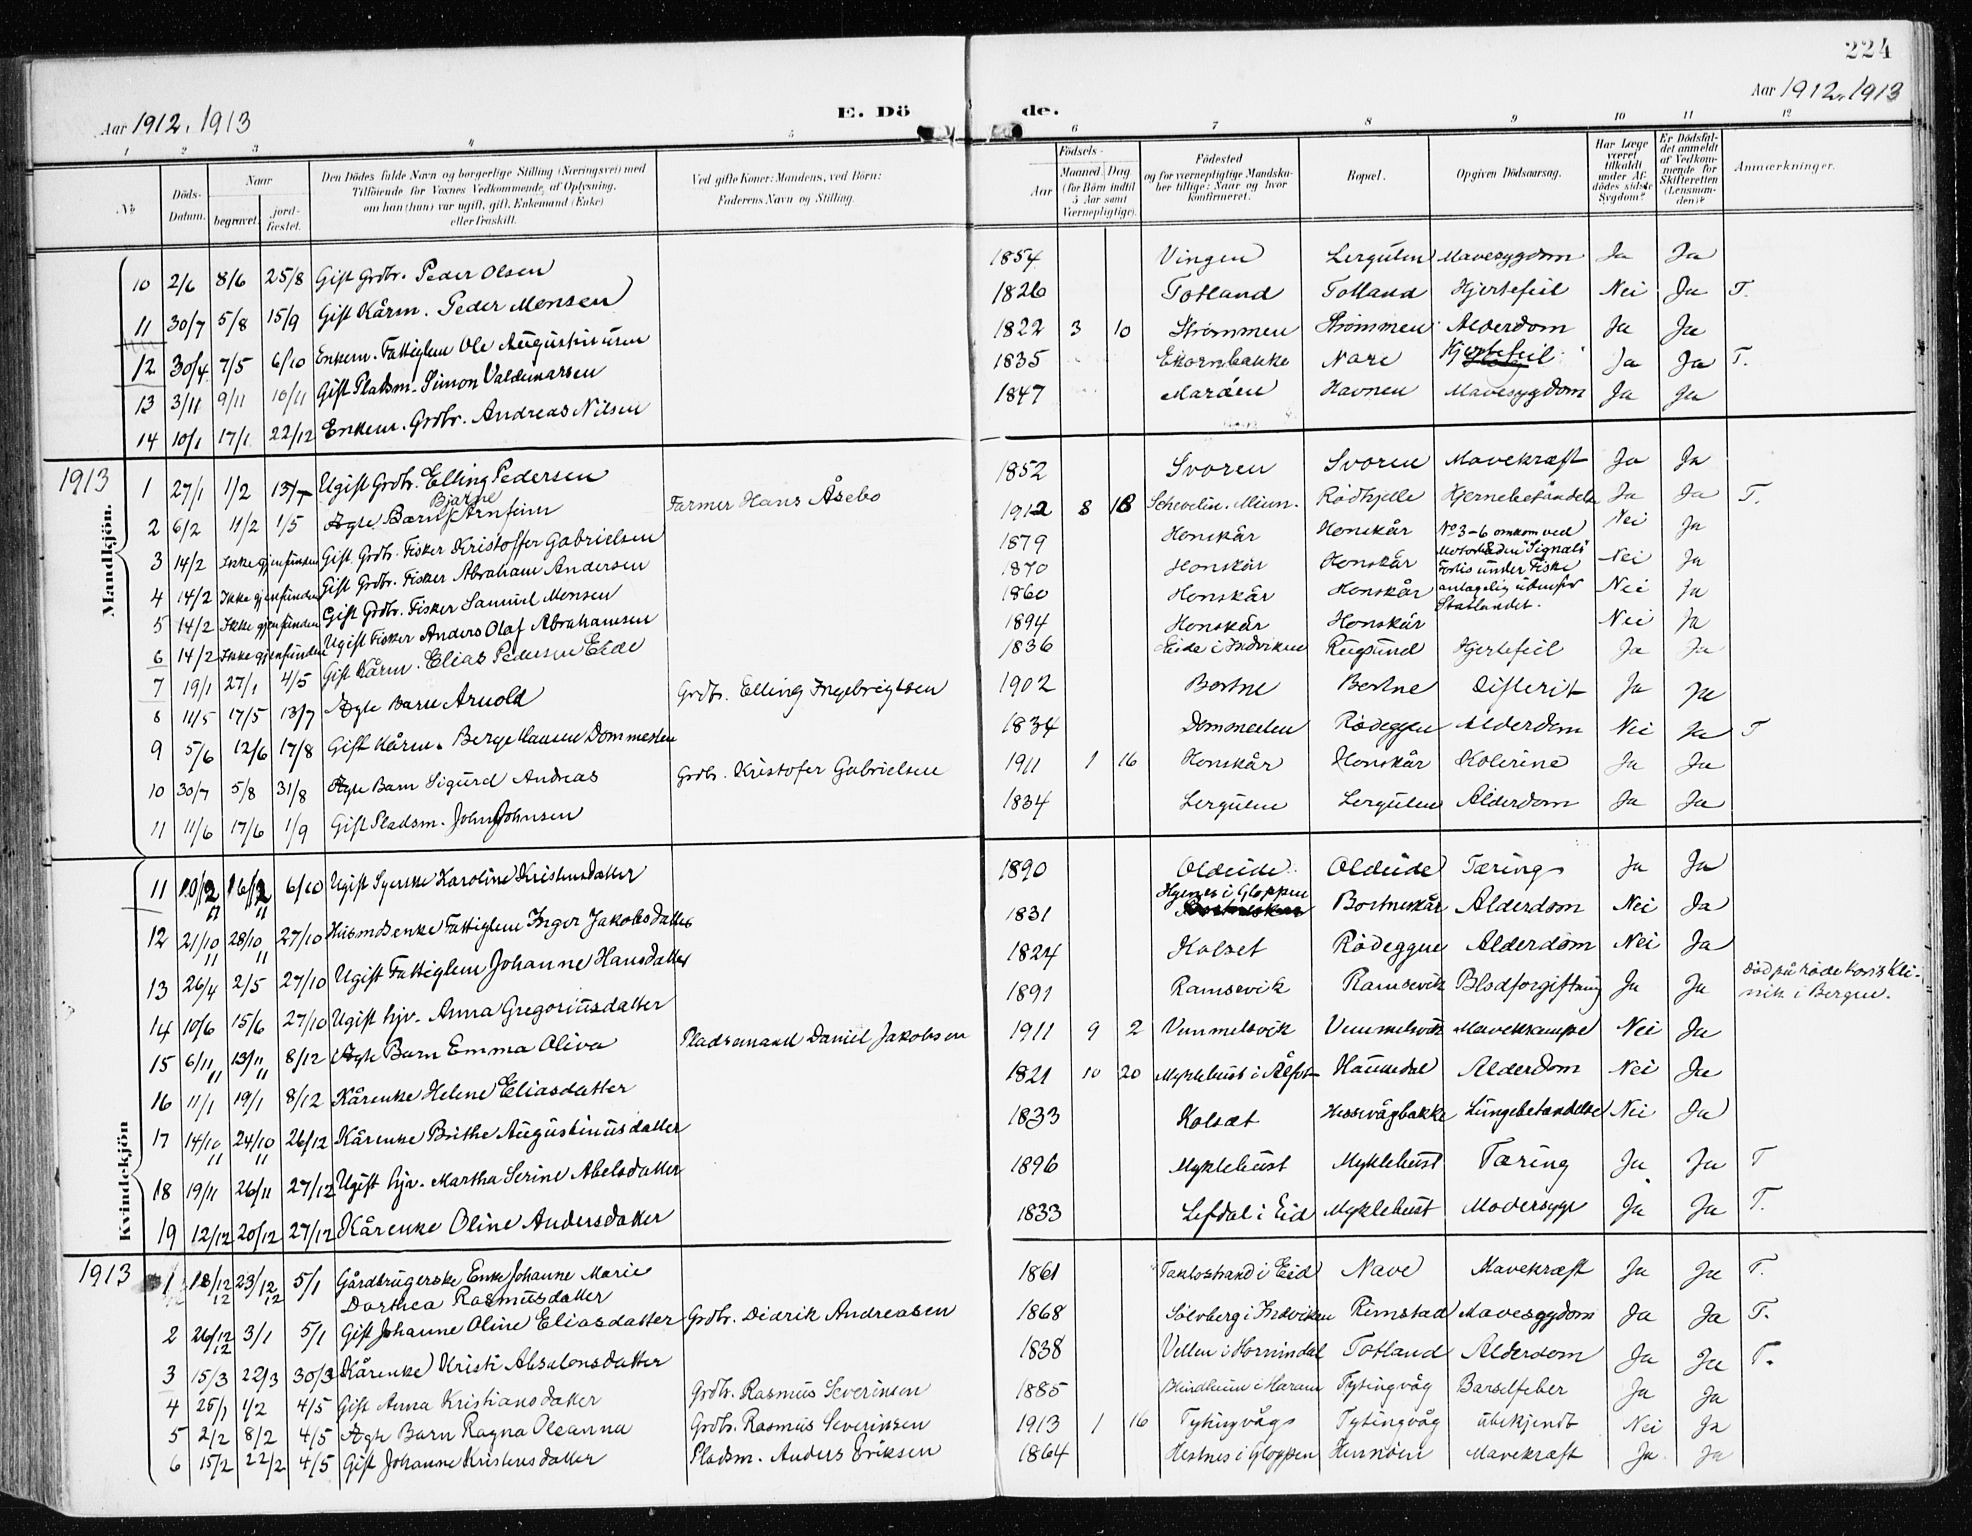 224
Aar 1912, 1913
E. Dö de.
Aar 1912, 1913
1 2 3 4 5 6 7 8 9 10 11 12
No
Döds-Datum.
Naar
begravet.
jord-fæstet.
Den Dödes fulde Navn og borgerlige Stilling (Næringsvei) med
Tilföiende for Voxnes Vedkommende af Oplysning,
om han (hun) var ugift, gift, Enkemand (Enke)
eller fraskilt.
Ved gifte Koner: Mandens, ved Börn:
Faderens Navn og Stilling.
Födsels-
Aar
Maaned Dag
(for Börn indtil
5 Aar samt
Værnepligtige).
Födested
og for værnepligtige Mandska-
ber tillige: Naar og hvor
konfirmeret.
Bopæl.
Opgiven Dödsaarsag.
Har Læge
været
tilkaldt
under Af-
dödes sidste
Sygdom?
Er Dödsfal-
det anmeldt
af Vedkom-
mende for
Skifteretten
(Lensman-
den)?
Anmærkninger.
10 2/6 8/6 25/8 Gift Grdbr. Peder Olsen 1854 Vingen Lergulen Mavesygdom Ja Ja
11 30/7 5/8 15/9 Gift Kårm. Peder Monsen 1826 Totland Totland Hjertefeil Nei Ja T.
12 30/4 7/5 6/10 Enkem. Fattiglem Ole Augustinusen 1822 3 10 Strømmen Strømmen Alderdom Ja Ja
13 3/11 9/11 10/11 Gift Pladsm. Simon Valdemarsen 1835 Ekornbakke Nave Hjertefeil Ja Ja T.
14 10/1 17/1 22/12 Enkem. Grdbr. Andreas Nilsen 1847 Marøen Havnen Mavesygdom Ja Ja
1913
Mandkjön.
1 27/1 1/2 13/7 Ugift Grdbr. Elling Pedersen 1852 Svoren Svoren Mavekræft Ja Ja
2 6/2 11/2 1/5 Ægte Barn Bjarne Arnfinn Farmer Hans Åsebø 1912 8 18 Rødhjelle Hjernebetændelse Ja Ja T.
3 14/2 Ikke gjenfunden Gift Grdbr. Fisker Kristoffer Gabrielsen 1879 Honskår Honskår No 3-6 omkom ved Nei Ja
4 14/2 Ikke gjenfunden Gift Grdbr. Fisker Abraham Andersen 1870 Honskår Honskår Motorbåden "Signals" Nei Ja
5 14/2 Ikke gjenfunden Gift Grdbr. Fisker Samuel Monsen 1860 Honskår Honskår Forlis under Fiske antagelig udenfor Nei Ja
6 14/2 Ikke gjenfunden Ugift Fisker Anders Olaf Abrahamsen 1894 Honskår Honskår Statlandet. Nei Ja
7 19/1 27/1 4/5 Gift Kårm. Elias Pedersen Eide 1836 Eide i Indviken Rugsund Hjertefeil Ja Ja
8 11/5 17/5 13/7 Ægte Barn Arnold Grdbr. Elling Ingebrigtsen 1902 Bortne Bortne Difterit Ja Ja
9 5/6 12/6 17/8 Gift Kårm. Berge Hansen Dommesten 1834 Dommesten Rødeggen Alderdom Nei Ja T
10 30/7 5/8 31/8 Ægte Barn Sigurd Andreas Grdbr. Kristofer Gabrielsen 1911 1 16 Honskår Honskår Kolerine Ja Ja
11 11/6 17/6 1/9 Gift Pladsm. John Johnsen 1834 Lergulen Lergulen Alderdom Ja Ja
Kvindekjön
11 10/12 11 16/12 11 6/10 Ugift Syerske Karoline Kristensdatter 1890 Oldeide Oldeide Tæring Ja Ja
12 21/10 11 28/10 11 27/10 Husmdsenke Fattiglem Inger Jakobsdatter 1831 Hjemes i Gloppen Bortneskår Alderdom Nei Ja
13 26/4 2/5 27/10 Ugift Fattiglem Johanne Hansdatter 1824 Kolset Rødeggen Alderdom Nei Ja
14 10/6 15/6 27/10 Ugift hjv. Anna Gregoriusdatter 1891 Ramsevik Ramsevik Blodforgiftning Ja Ja Død på Røde Kors's Kli-
nik i Bergen.
15 6/11 11 13/11 11 8/12 Ægte Barn Emma Oliva Pladsemand Daniel Jakobsen 1911 9 2 Vemmelsvik Vemmelsvik Mavekrampe Nei Ja
16 11/1 19/1 8/12 Kårenke Helene Eliasdatter 1821 10 20 Myklebust i Ålfot Haunedal Alderdom Nei Ja
17 14/10 11 24/10 11 26/12 Kårenke Brithe Augustinusdatter 1833 Kolset Hessevågbakke Lungebetændelse Nei Ja
18 19/11 26/11 27/12 Ugift hjv. Martha Serine Abelsdatter 1896 Myklebust Myklebust Tæring Ja Ja T
19 12/12 20/12 27/12 Kårenke Oline Andersdatter 1833 Lefdal i Eid Myklebust Modersyge Ja Ja T.
1913
1 18/12 12 23/12 12 5/1 Gårdbrugerske Enke Johanne Marie
Dorthea Rasmusdatter 1861 Taklostrand i Eid Nave Mavekræft Ja Ja T.
2 26/12 12 3/1 5/1 Gift Johanne Oline Eliasdatter Grdbr. Didrik Andreasen 1868 Sølvberg i Indviken Rimstad Mavesygdom Ja Ja T.
3 15/3 22/3 30/3 Kårenke Kristi Absalonsdatter 1838 Vellen i Hornindal Totland Alderdom Ja Ja T.
4 25/1 1/2 4/5 Gift Anna Kristiansdatter Grdbr. Rasmus Severinsen 1885 Blindheim i Haram Tytingvåg Barselfeber Ja Ja
5 2/2 8/2 4/5 Ægte Barn Ragna Oleanna Grdbr. Rasmus Severinsen 1913 1 16 Tytingvåg Tytingvåg ubekjendt Nei Ja
6 15/2 22/2 4/5 Gift Johanne Kristensdatter Pladsm. Anders Eriksen 1864 Hestnes i Gloppen Hennøen Mavekræft Ja Ja